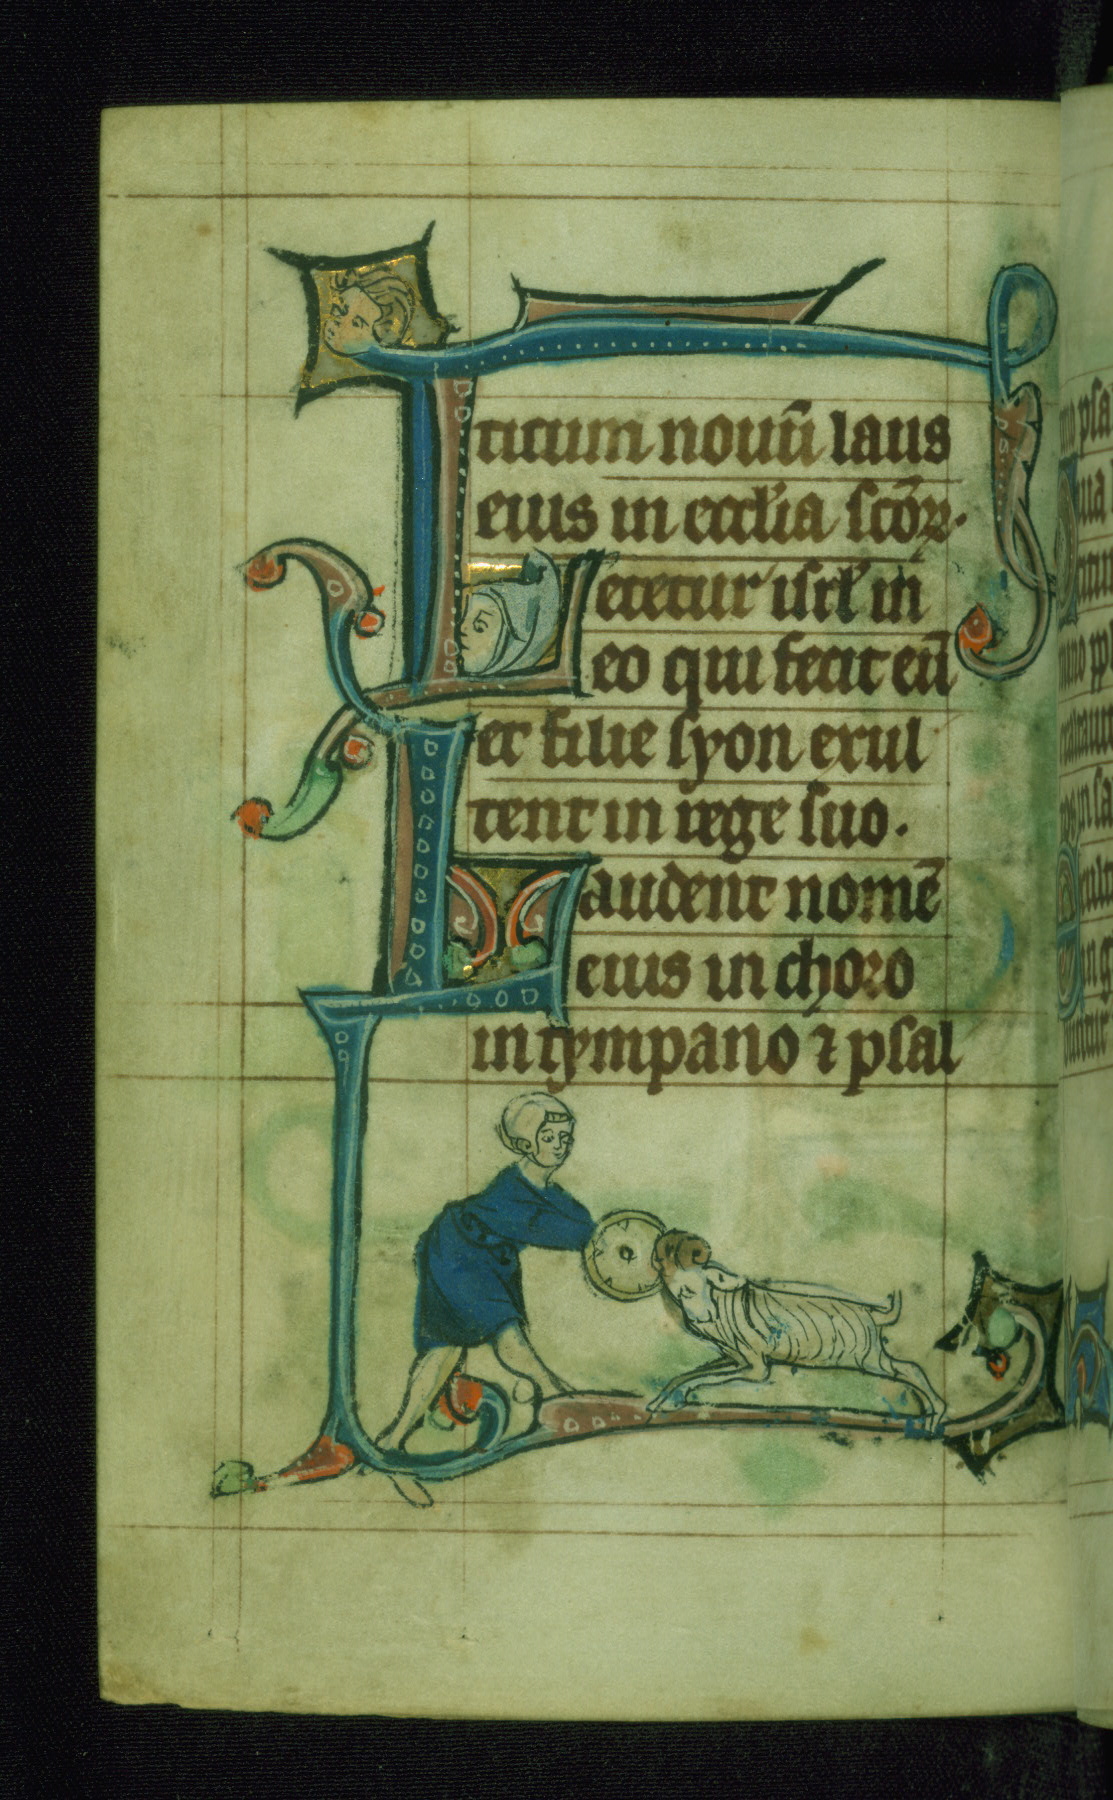 ticum nouū laus
eius in eccl'ia scōꝝ.
Letetur isrl' in
eo qui fecit eū
et filie syon exul
tent in rege suo.
Laudent nomē
eius in choro
in tympano ⁊ psal